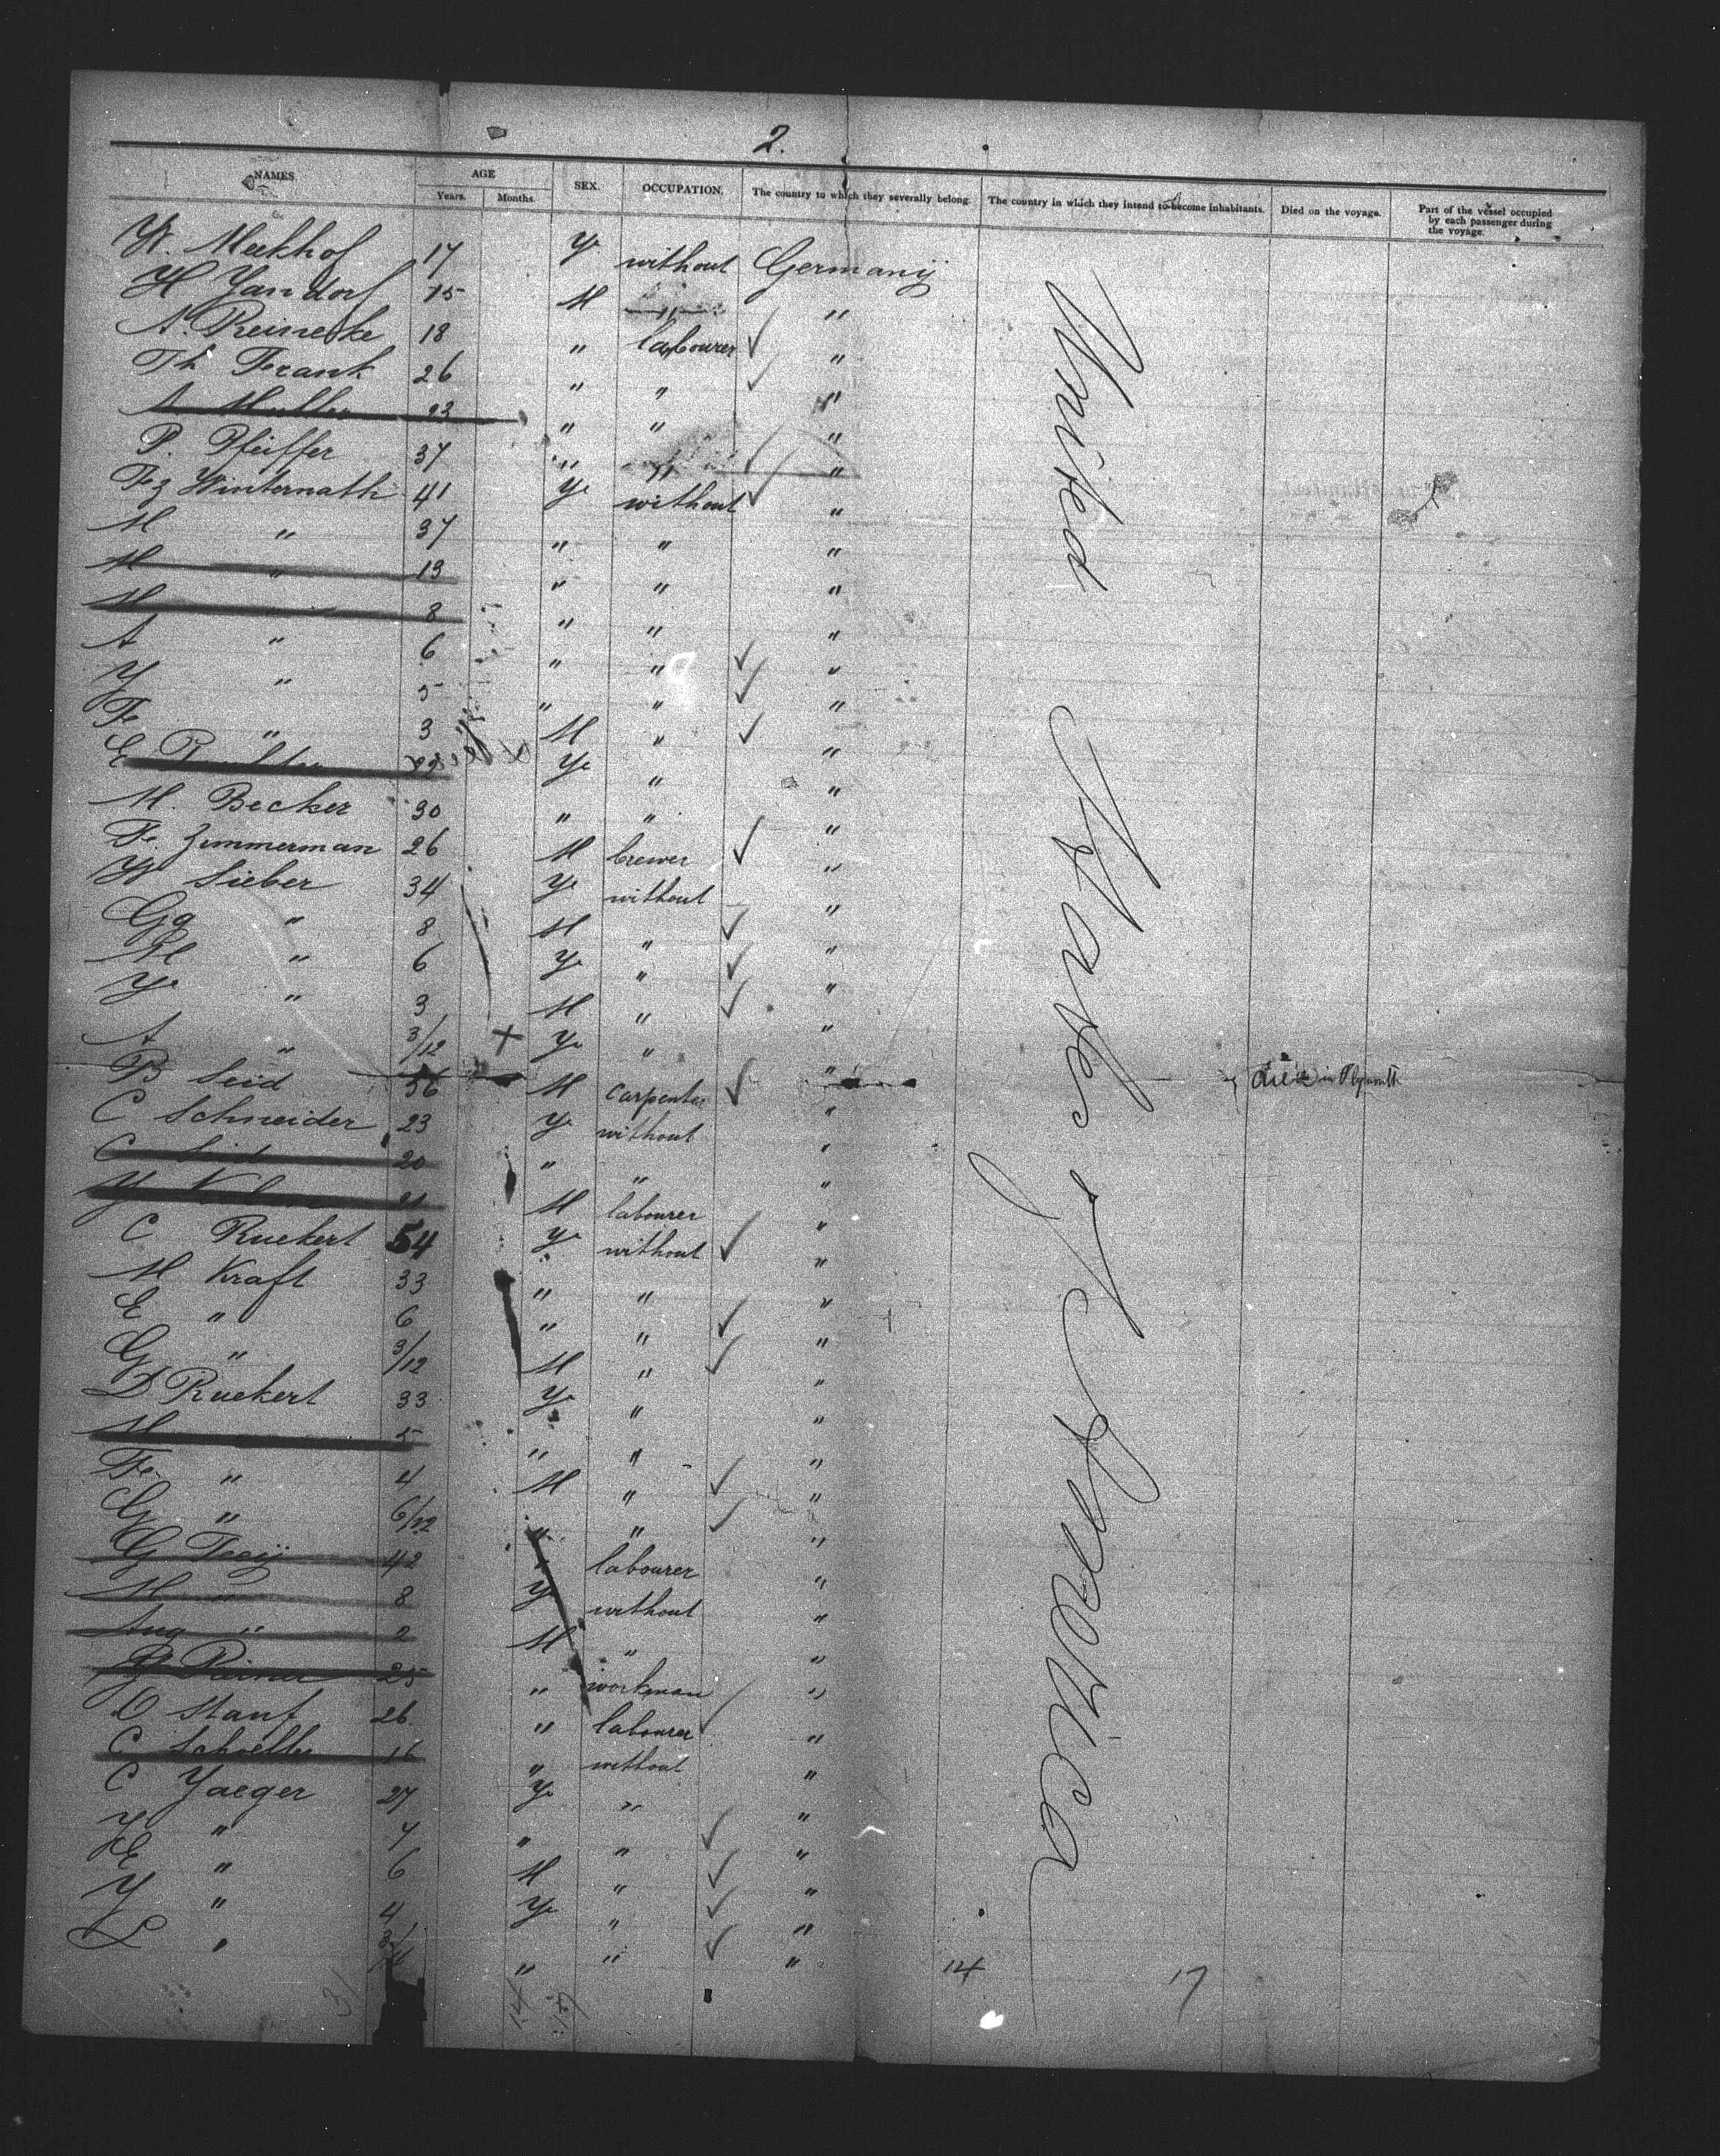 2.
NAMES AGE SEX. OCCUPATION. The country to which they severally belong. The country in which they intend to become inhabitants. Died on the voyage. Part of the vessel occupied by each passenger during the voyage.
Years. Months.
W. Meekhof 17 Ye without Germany
H Yandorf 15 M " "
A. Reinecke 18 " labourer "
Th Frank 26 " " "
A. Muller 23 " " "
P. Pfeiffer 37 " " "
Fez Winternath 41 Ye without "
M " 37 " " "
M " 13 " " "
M " 8 " " "
A " 6 " " "
Y " 5 " " "
Fr " 3 M " "
E Ye " "
M. Becker 30 " " "
Fr. Zimmerman 26 M brewer "
W Sieber 34 Ye without "
Gg " 8 M " "
M " 6 Ye " "
Ye " 3 M " "
A " 3/12 + Ye " "
B Seid 56 M carpenter " died in Plymouth
C Schneider 23 Ye without "
C Seid 20 " " "
21 M labourer "
C Ruckert 54 Ye without "
M Kraft 33 " " "
E " 6 " " "
G " 3/12 M " "
D Ruckert 33 Ye " "
M 5 " " "
Fr " 4 M " "
G " 6/12 " " "
G 42 " labourer "
M " 8 Ye without "
Aug " 2 M " "
25 " workman "
O Stauf 26 " labourer "
C Schoeller 16 " without "
C Yaeger 27 Ye " "
Y " 7 " " "
E " 6 M " "
Y " 4 Ye " "
L " " " "
United States of America
31 14 17 14 17